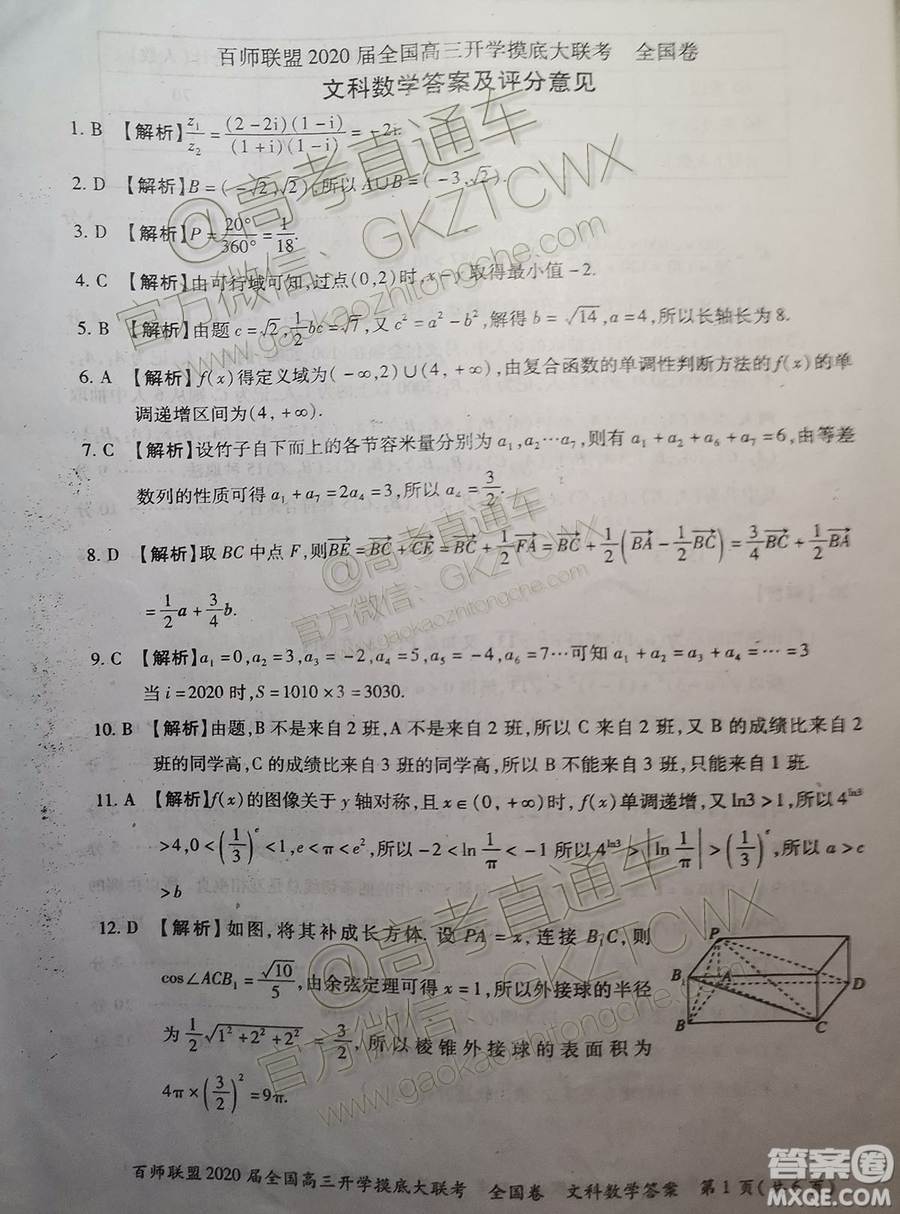 百师联盟2020届全国高三开学摸底大联考 全国卷
文科数学答案及评分意见
1. B 【解析】z₁/z₂=(2-2i)(1-i)/(1+i)(1-i)=-2i.
2. D 【解析】B=(-√2,√2),所以A∪B=(-3,√2).
3. D 【解析】P=20°/360°=1/18.
4. C 【解析】由可行域可知,过点(0,2)时,x-y取得最小值-2.
5. B 【解析】由题c=√2,1/2bc=√7,又c²=a²-b²,解得b=√14,a=4,所以长轴长为8.
6. A 【解析】f(x)得定义域为(-∞,2)∪(4,+∞),由复合函数的单调性判断方法的f(x)的单
调递增区间为(4,+∞).
7. C 【解析】设竹子自下而上的各节容米量分别为a₁,a₂…a₇,则有a₁+a₂+a₆+a₇=6,由等差
数列的性质可得a₁+a₇=2a₄=3,所以a₄=3/2.
8. D 【解析】取BC中点F,则BE→=BC→+CE→=BC→+1/2FA→=BC→+1/2(BA→-1/2BC→)=3/4BC→+1/2BA→
=1/2a+3/4b.
9. C 【解析】a₁=0,a₂=3,a₃=-2,a₄=5,a₅=-4,a₆=7…可知a₁+a₂=a₃+a₄=…=3
当i=2020时,S=1010×3=3030.
10. B 【解析】由题,B不是来自2班,A不是来自2班,所以C来自2班,又B的成绩比来自2
班的同学高,C的成绩比来自3班的同学高,所以B不能来自3班,只能来自1班.
11. A 【解析】f(x)的图像关于y轴对称,且x∈(0,+∞)时,f(x)单调递增,又ln3>1,所以4^ln3
>4,0<(1/3)^e<1,e<π<e²,所以-2<ln1/π<-1所以4^ln3>|ln1/π|>(1/3)^e,所以a>c
>b
12. D 【解析】如图,将其补成长方体.设PA=x,连接B₁C,则
cos∠ACB₁=√10/5,由余弦定理可得x=1,所以外接球的半径
为1/2√1²+2²+2²=3/2,所以棱锥外接球的表面积为
4π×(3/2)²=9π.
P
B₁
A
D
B
C
百师联盟2020届全国高三开学摸底大联考 全国卷 文科数学答案 第1页(共6页)
@高考直通车
官方微信：GKZTCWX
www.gaokaozhitongche.com
@高考直通车
官方微信：GKZTCWX
www.gaokaozhitongche.com
@高考直通车
官方微信：GKZTCWX
www.gaokaozhitongche.com
答案圈
MXQE.COM